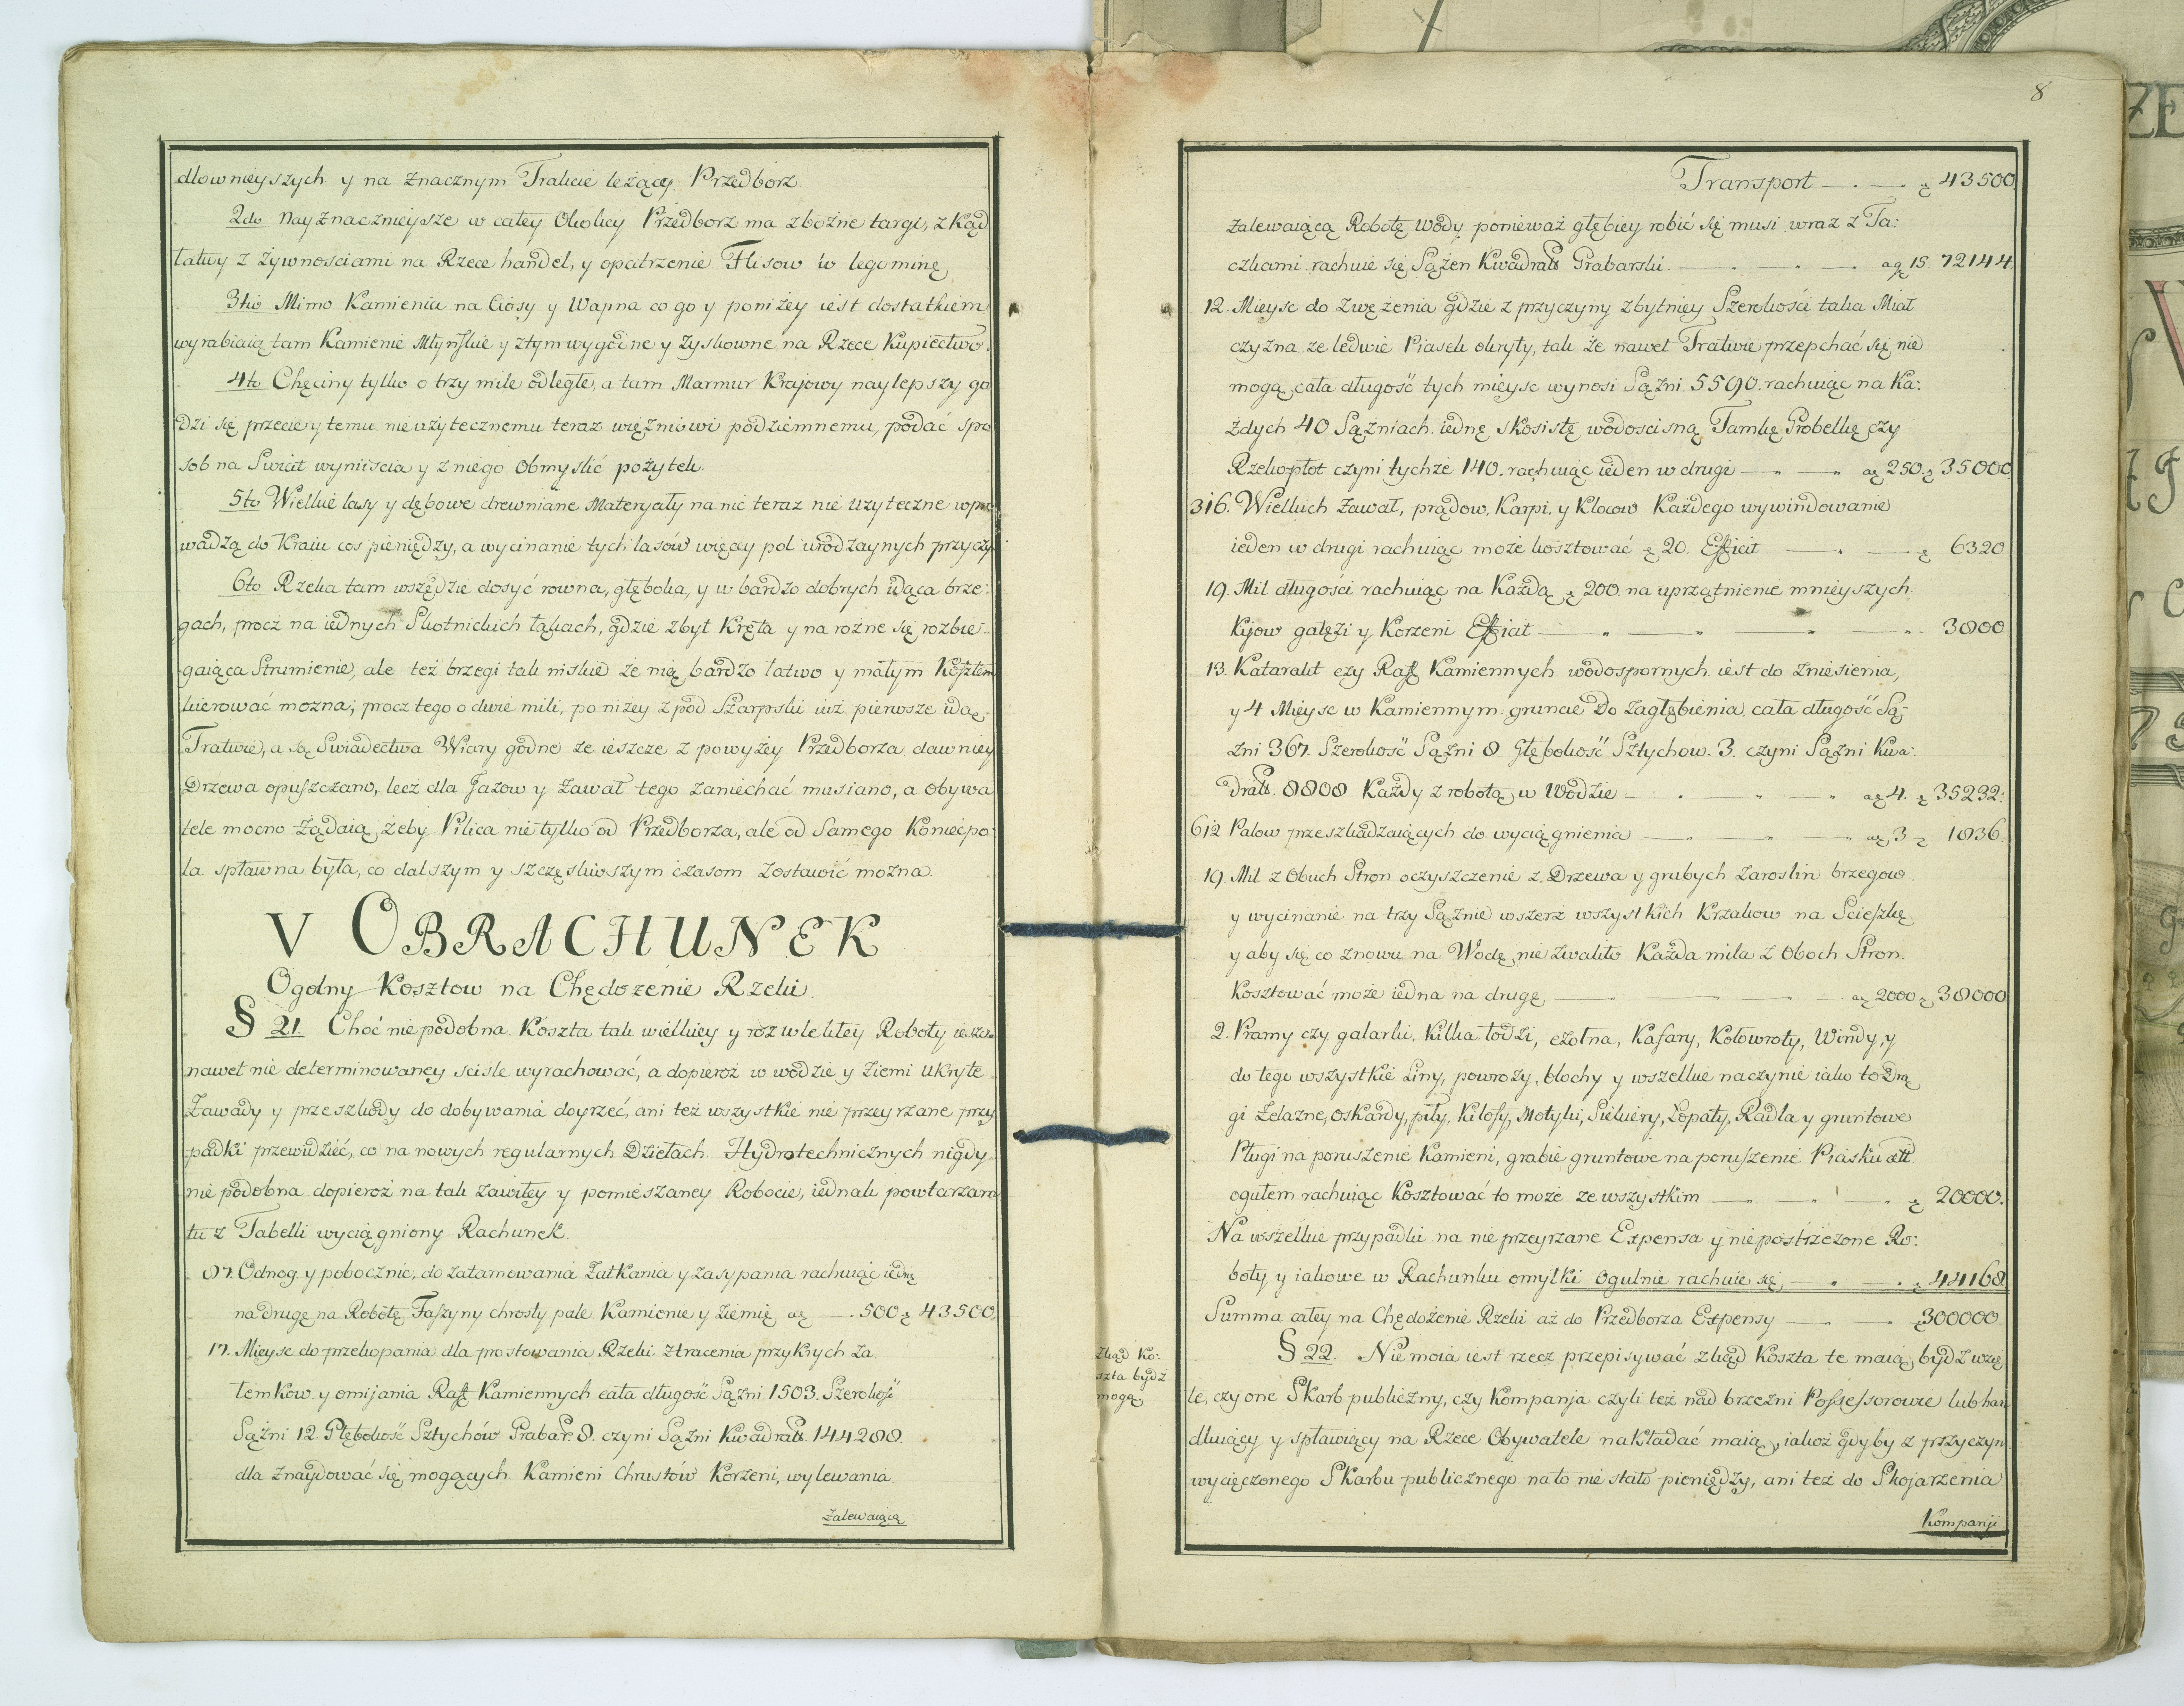 dlownieyszych y na znacznym Trakcie leżący Przedborz.
2do Nayznacznieysze w całey Okolicy Przedborz ma zbożne targi, z kąd
łatwy z żywnosciami na Rzece handel, y opatrzenie Flisow w leguminę
3tio Mimo Kamienia na Ciosy y Wapna co go y poniżey iest dostatkiem
wyrabiaią tam Kamienie Młyńskie y z tym wygodne y zyskowne na Rzece Kupiectwo.
4to Chęciny tylko o trzy mile odległe, a tam Marmur Krajowy naylepszy go
dzi się przecie y temu nieużytecznemu teraz więzniowi podziemnemu, podać spo
sob na Swiat wyniscia y z niego obmyslić pożytek.
5to Wielkie lasy y dębowe drewniane Materyały na nic teraz nie uzyteczne wpro
wadzą do Kraiu cos pieniędzy, a wycinanie tych lasów więcey pol urodzaynych przyczy
6to Rzeka tam wszędzie dosyć rowna, głęboka, y w bardzo dobrych idąca brze:
gach, procz na iednych Skotnickich łąkach, gdzie zbyt kręta y na rozne się rozbie-
gaiąca Strumienie, ale też brzegi tak niskie że nią bardzo łatwo y małym Kosztem
kierować mozna; procz tego o dwie mili, poniżey z pod Szarpski iuż pierwsze idą
Tratwie, a są Swiadectwa Wiary godne ze ieszcze z powyżey Przedborza dawniey
Drzewa opuszczano, lecż dla Jazow y zawał tego zaniechać musiano, a Obywa
tele mocno żądaią, zeby Pilica nie tylko od Przedborza, ale od Samego Koniecpo
la spławna była, co dalszym y szczęsliwszym czasom zostawić mozna.
V OBRACHUNEK
Ogolny Kosztow na Chędożenie Rzeki.
§ 21. Choć niepodobna Koszta tak wielkiey y rozwlekłey Roboty ieszcze
nawet nie determinowaney scisle wyrachować, a dopieroż w wodzie y ziemi ukryte
Zawady y przeszkody do dobywania doyrzeć, ani też wszystkie nie przeyrzane przy
padki przewidzieć, co na nowych regularnych Dziełach Hydrotechnicznych nigdy
nie podobna dopieroż na tak zawiłey y pomieszaney Robocie, iednak powtarzam
tu z Tabelli wyciągniony Rachunek.
87. Odnog y pobocznic, do zatamowania Zatkania y zasypania rachuiąc iedną
na drugę na Robotę Faszyny chrosty pale Kamienie y ziemię a zł — . 500 zł 43500
17. Mieysc do przekopania dla prostowania Rzeki ztracenia przykrych za
łemkow y omijania Raff Kamiennych cała długość Sążni 1503. Szerokość
Sążni 12. Głębokość Sztychów Grabar: 8. czyni Sążni Kwadrat. 144288.
dla znaydować się mogących Kamieni Chrustów Korzeni, wylewania
Zalewaiącą
8
Transport — . — zł 43500
zalewaiącą Robotę wody ponieważ głębiey robić się musi wraz z Ta:
czkami rachuie się Sążen Kwadrat Grabarski. — " — " — a g 15. 72144
12. Mieysc do zwężenia gdzie z przyczyny zbytniey Szerokości taka Miał
czyzna ze ledwie Piasek okryty, tak że nawet Tratwie przepchać się nie
mogą, cała długość tych mieysc wynosi Sążni 5590. rachuiąc na Ka:
żdych 40 Sążniach iednę skosistę wodocisną Tamkę Probellkę czy
Rzekopłot czyni tychże 140. rachuiąc ieden w drugi — " — " a zł 250. zł 35000
316. Wielkich Zawał, prądow, Karpi, y Klocow Każdego wywindowanie
ieden w drugi rachuiąc może kosztować zł 20. Efficit — " — zł 6320
19. Mil długości rachuiąc na Każdą zł 200 na uprzątnienie mnieyszych
Kijow gałęzi y Korzeni Efficit — " — " — " 3800
13. Katarakt czy Raff Kamiennych wodospornych iest do zniesienia,
y 4 Mieysc w Kamiennym gruncie Do zagłębienia cała długość Są-
zni 367. Szerokość Sążni 8 Głębokość Sztychow. 3. czyni Sążni Kwa:
drat. 8808 Każdy z robotą w Wodzie — . — " — " a zł 4. zł 35232:
612 Palow przeszkadzaiących do wyciągnienia — " — " — " a zł 3 zł 1836.
19. Mil z Obuch Stron oczyszczenie z Drzewa y grubych zaroslin brzegow
y wycinanie na trzy Sążnie wszerz wszystkich Krzakow na Scieszkę
y aby się co znowu na Wodę nie zwaliło Każda mila z Oboch Stron.
Kosztować może iedna na drugę — " — " — " a zł 2000 zł 38000
2. Pramy czy galarki, Kilka łodzi, czołna, Kafary, Kołowroty, Windy, y
do tego wszystkie Liny, powrozy, blochy y wszelkie naczynie iako to Drą
gi żelazne, oskardy, piły, Kilofy, Motyki, Siekiery, Łopaty, Radla y gruntowe
Pługi na poruszenie Kamieni, grabie gruntowe na poruszenie Piasku
ogułem rachuiąc Kosztować to może ze wszystkim — " — " — " zł 20000.
Na wszelkie przypadki na nie przeyrzane Expensa y niepostrzeżone Ro:
boty y iakowe w Rachunku omyłki ogulnie rachuie się, — " — . zł 44168
Summa całey na Chędożenie Rzeki aż do Przedborza Expensy — " — zł 300000
Zkąd Ko:
szta bydż
mogą
§ 22. Nie moia iest rzecz przepisywać zkąd Koszta te maią bydź wzię
te, czy one Skarb publiczny, czy Kompanja czyli też nad brzezni Possessorowie lub han
dluiący y spławiący na Rzece Obywatele nakładać maią, iakoż gdyby z przyczyn
wycięczonego Skarbu publicznego na to nie stało pieniędzy, ani też do Skojarzenia
Kompanji